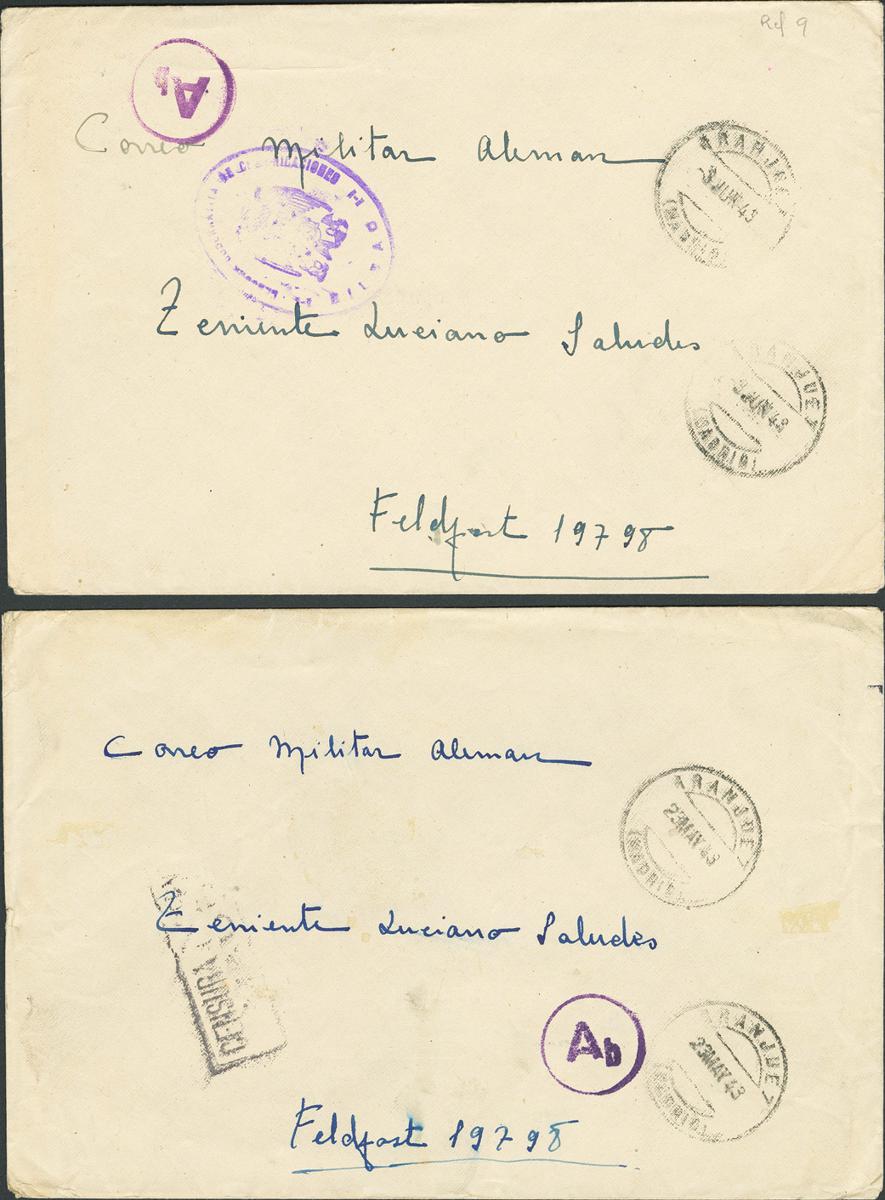 Ref 9
Ab
Correo Militar Aleman
ARANJUEZ
3 JUN 43
(MADRID)
DE COMUNICACIONES
Teniente Luciano Saludes
ARANJUEZ
3 JUN 43
(MADRID)
Feldpost 19798
Correo Militar Aleman
ARANJUEZ
23 MAY 43
(MADRID)
Teniente Luciano Saludes
CENSURA
Ab
ARANJUEZ
23 MAY 43
(MADRID)
Feldpost 19798